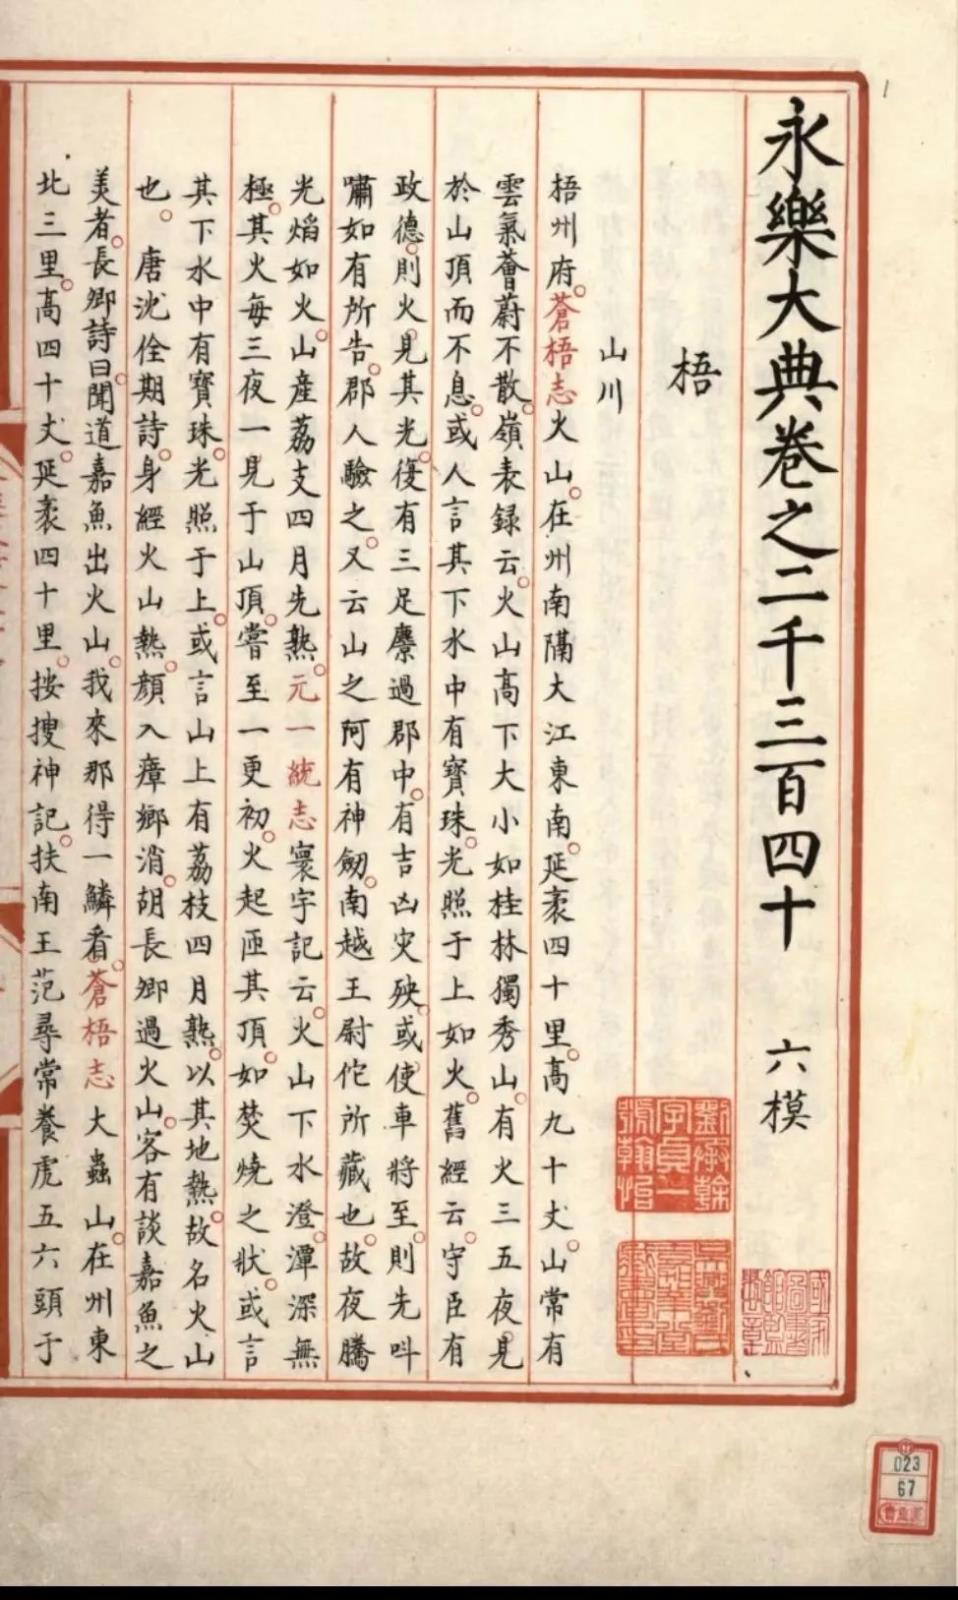 永樂大典卷之二千三百四十 六模
梧
山川
梧州府。蒼梧志火山。在州南隔大江東南。延袤四十里。高九十丈。山常有
雲氣薈蔚不散。嶺表録云。火山高下大小如桂林獨秀山。有火三五夜見
於山頂而不息。或人言其下水中有寶珠。光照于上如火。舊經云。守臣有
政德。則火見其光。復有三足麞過郡中。有吉凶災殃。或使車將至。則先呌
嘯如有所告。郡人驗之。又云山之阿有神劒。南越王尉佗所藏也。故夜騰
光焰如火。山產荔支四月先熟。元一統志寰宇記云。火山下水澄潭深無
極。其火每三夜一見于山頂。嘗至一更初。火起匝其頂。如焚燒之狀。或言
其下水中有寶珠。光照于上。或言山上有荔枝四月熟。以其地熱。故名火山
也。 唐沈佺期詩。身經火山熱。顏入瘴鄉消。胡長卿過火山。客有談嘉魚之
美者。長卿詩曰。聞道嘉魚出火山。我來那得一鱗看。蒼梧志大蟲山。在州東
北三里。高四十丈。延袤四十里。按搜神記。扶南王范尋常養虎五六頭于
劉承幹字貞一號翰怡
吳興劉氏嘉業堂藏書印
023
67